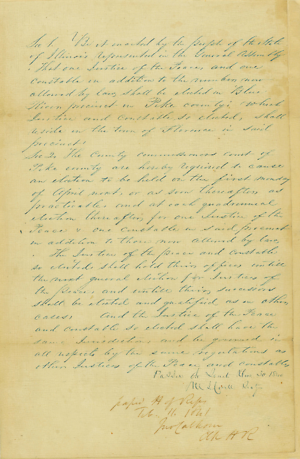 Sec 1. Be it enacted by the people of the State
of Illinois represented in the General Assembly
That one Justice of the Peace and one
constable in addition to the number now
allowed by law, shall be elected in Blue
River precinct in Pike county; which
Justice and Constable so elected, shall
reside in the town of Florence in said
precinct.
Sec 2. The County commissioners court of
Pike county are hereby required to cause
an election to be held on the first monday
of April next, or as soon thereafter as
practicable and at each quadrennial
election thereafter, for one Justice of the
Peace & one constable in said precinct
in addition to those now allowed by law,
The Justice of the peace and constable
so elected shall hold their offices until
the next general election for Justices of
the Peace, and until their successors
shall be elected and qualified as in other
cases; and the Justice of the Peace
and constable so elected shall have the
same Jurisdiction and be governed in
all respects by the same regulations as
other Justices of the Peace and constables
Passed the Senate
passed H of Reps
Feby
Jno Calhoun
Clk H R